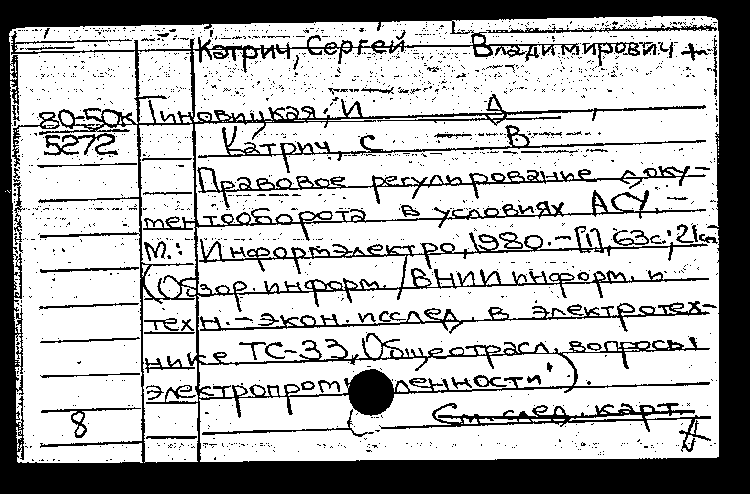 Катрич, Сергей Владимирович +
80-50к Тиновицкая, И Д
5272 Катрич, С В
Правовое регулирование доку-
ментооборота в условиях АСУ. -
М.: Информэлектро, 1980. - [1], 63с; 21см
(Обзор. информ. / ВНИИ информ. и
техн. - экон. исслед. в электротех-
нике. ТС-33, Общеотрасл. вопросы
электропромышленности").
8 См. след. карт.